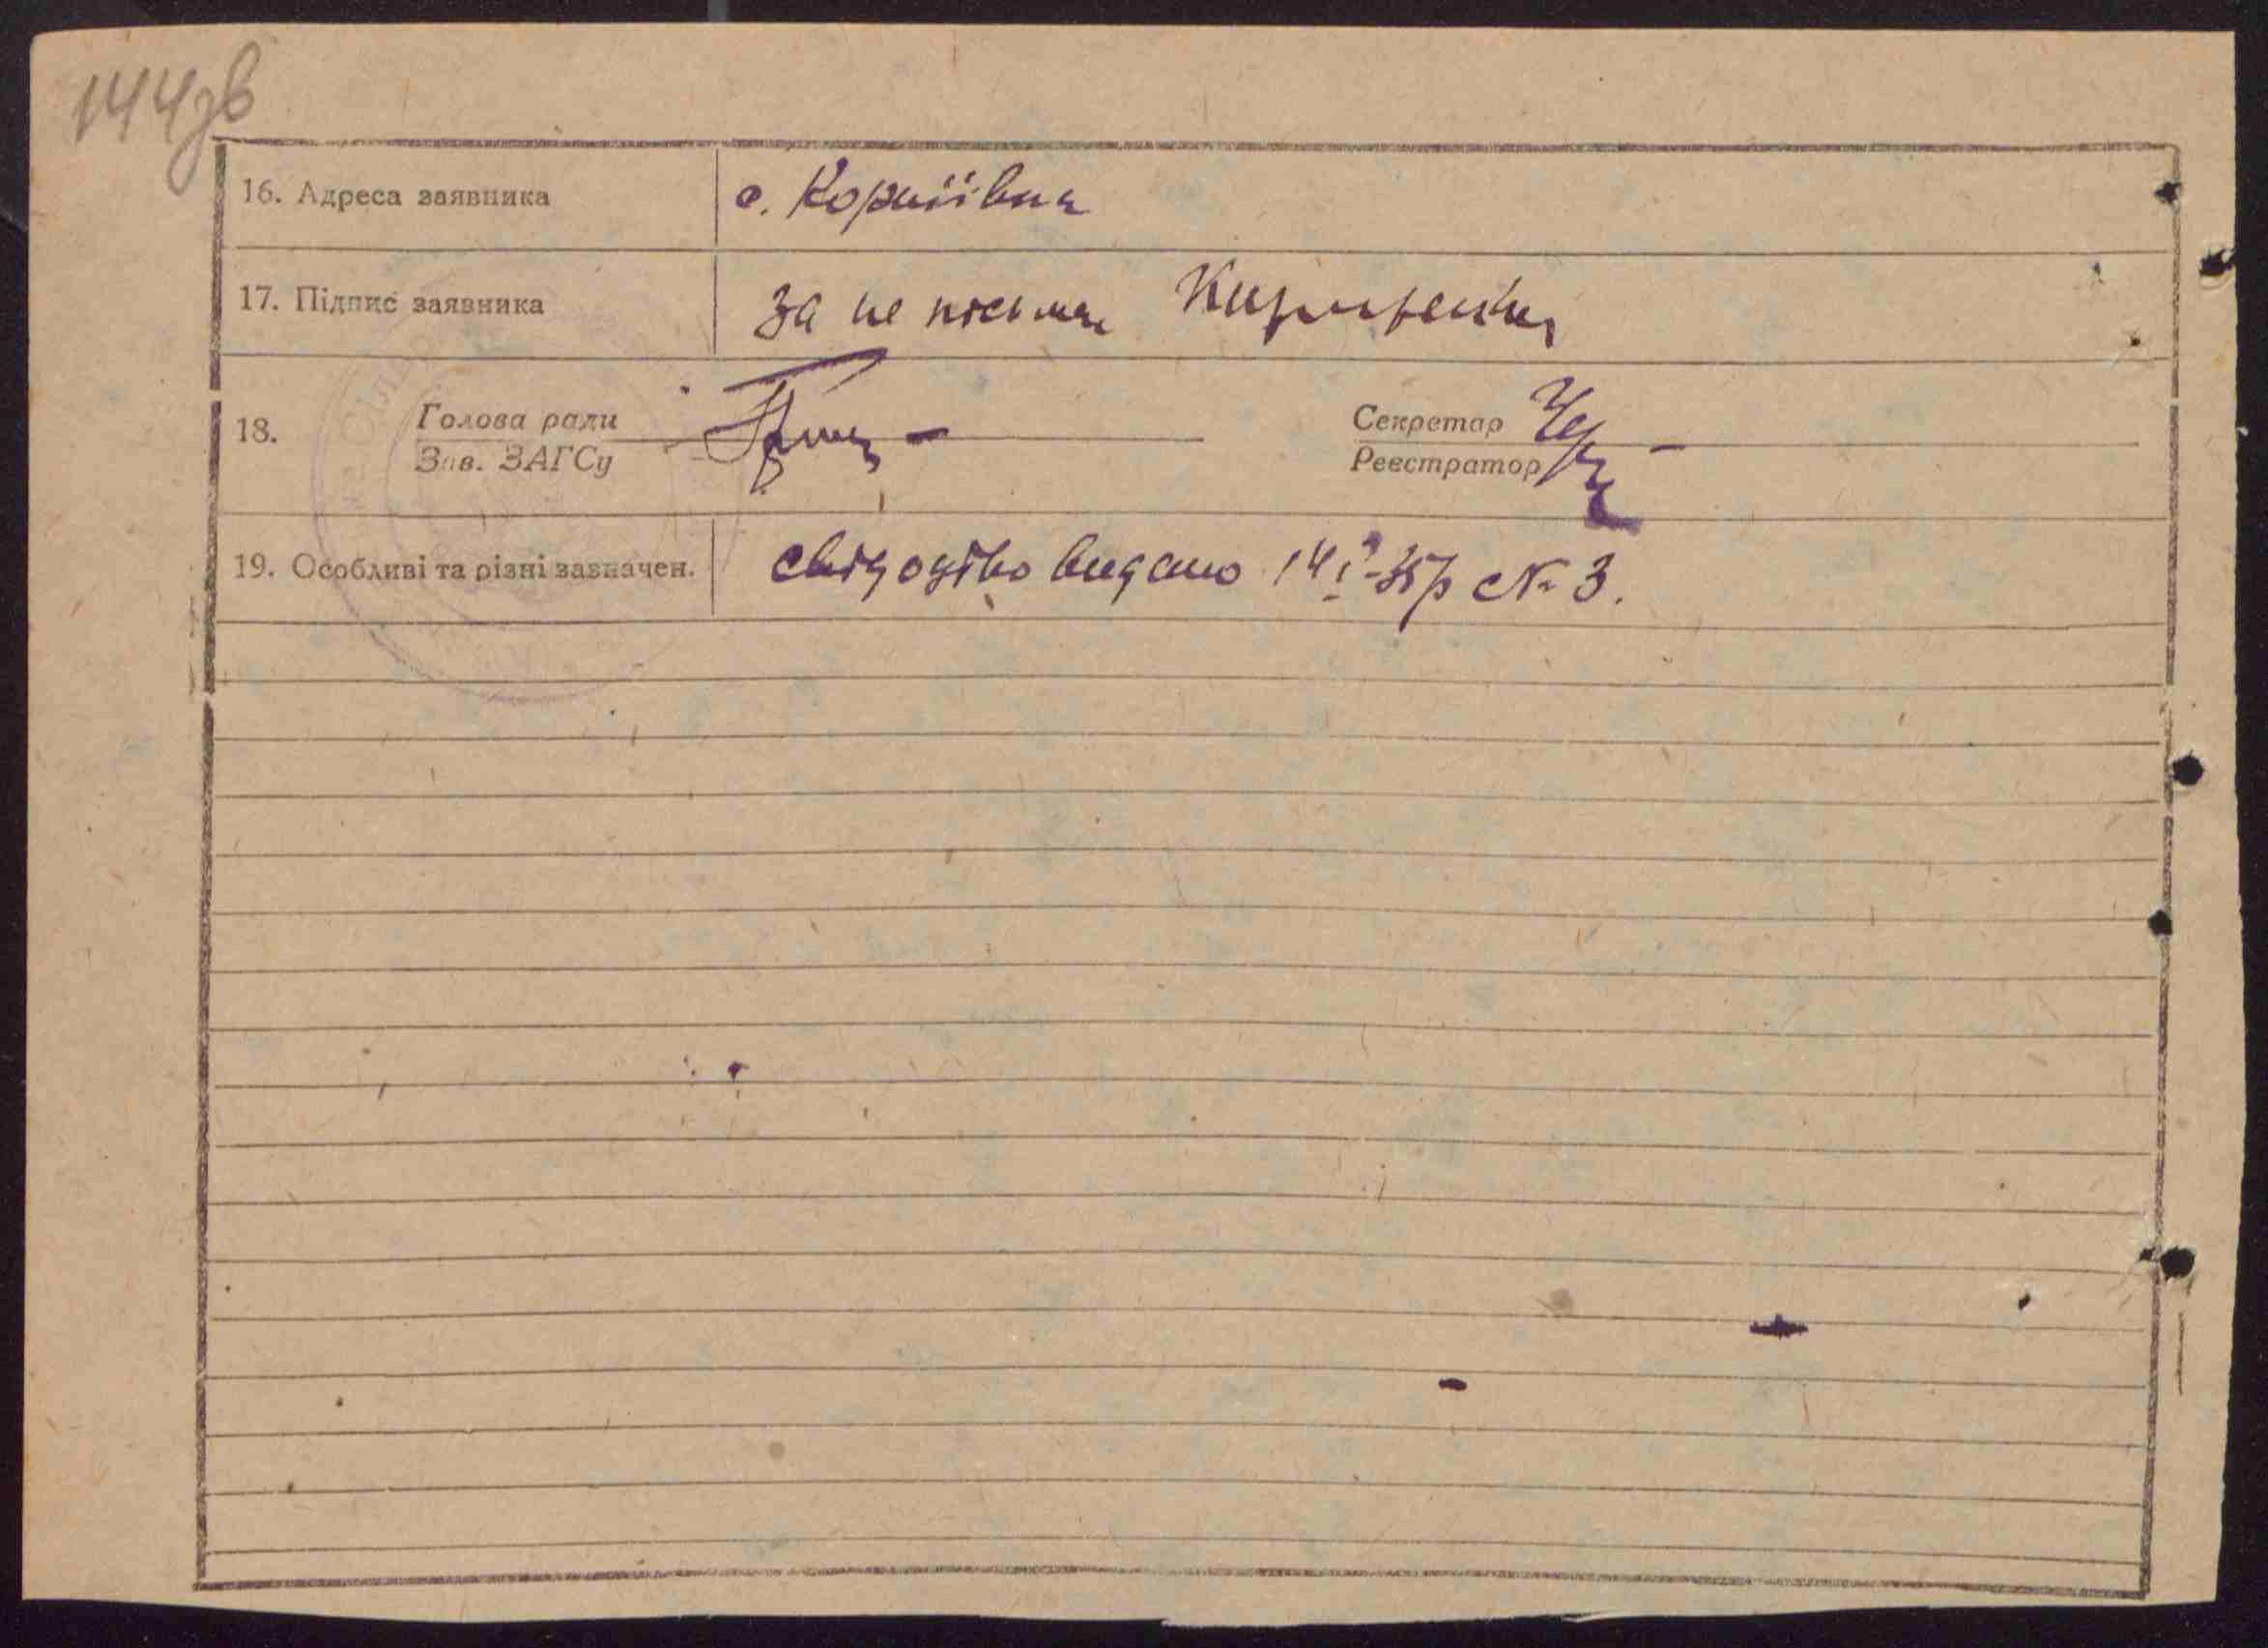 144зв
16. Адреса заявника с. Корніївка
17. Підпис заявника за не письмен
18. Голова ради Секретар
Зав. ЗАГСу Реєстратор
19. Особливі та різні зазначен. свідоцтво видано 14 35р № 3.